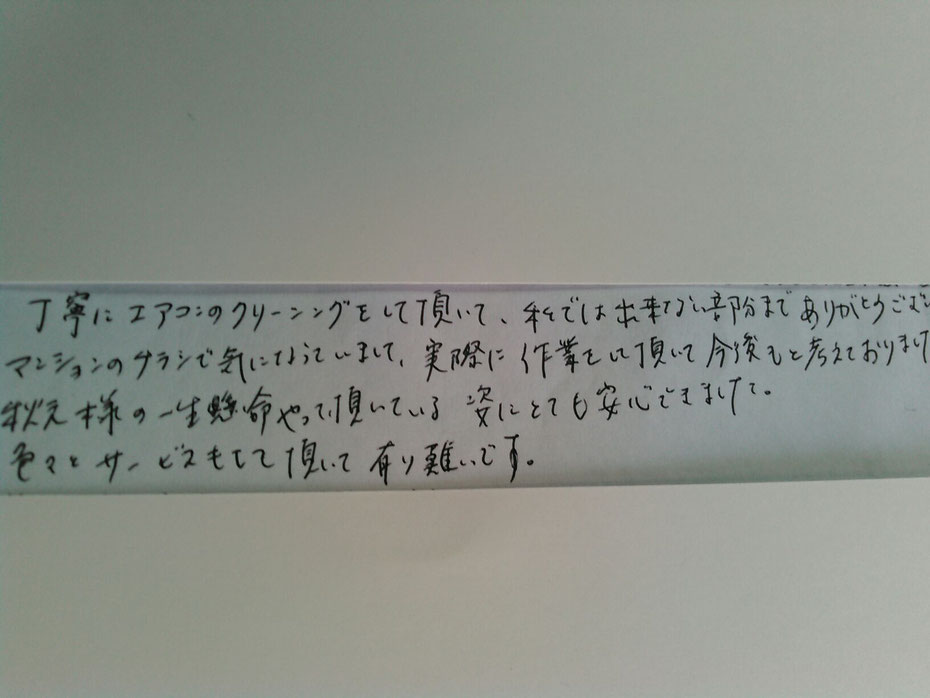 丁寧にエアコンのクリーニングをして頂いて、私では出来ない部分までありがとうござい
マンションのチラシで気になっていまして、実際に作業をして頂いて今後もと考えておりました
秋元様の一生懸命やって頂いている姿にとても安心できました。
色々とサービスもして頂いて有り難いです。